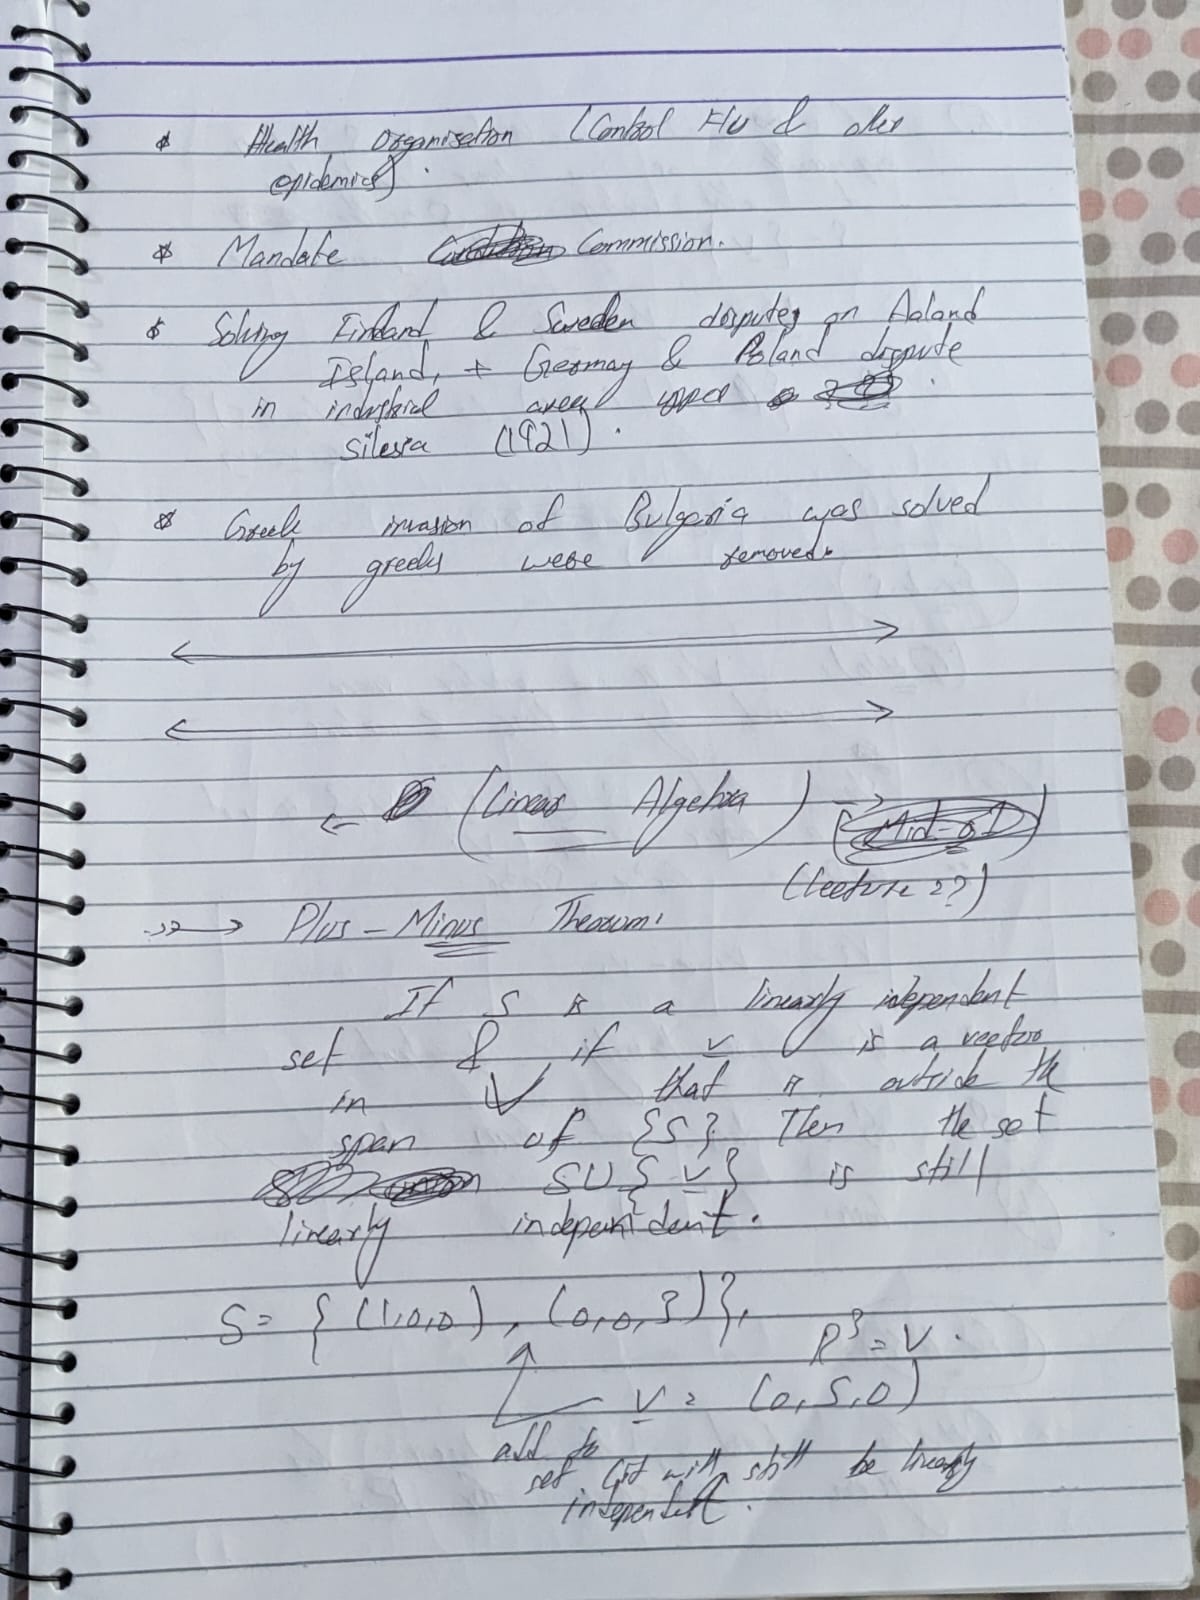 * Health Organisation (Control Flu & other
epidemics).
* Mandate Commission.
* Solving Finland & Sweden disputes on Aaland
Island, + Germay & Poland dispute
in industrial area upper
Silesia (1921).
* Greek invasion of Bulgaria was solved
by greeks were removed.
← (Linear Algebra) →
(Mid-01)
(Lecture 2?)
→ Plus - Minus Theorum.
If S is a linearly independent
set & if v is a vector
in V that is outside the
span of {S} Then the set
S U { v } is still
linearly independent.
S = { (1,0,0) , (0,0,3) },
R³ = V.
v = (0,5,0)
add to
set (it will still be linearly
independent.